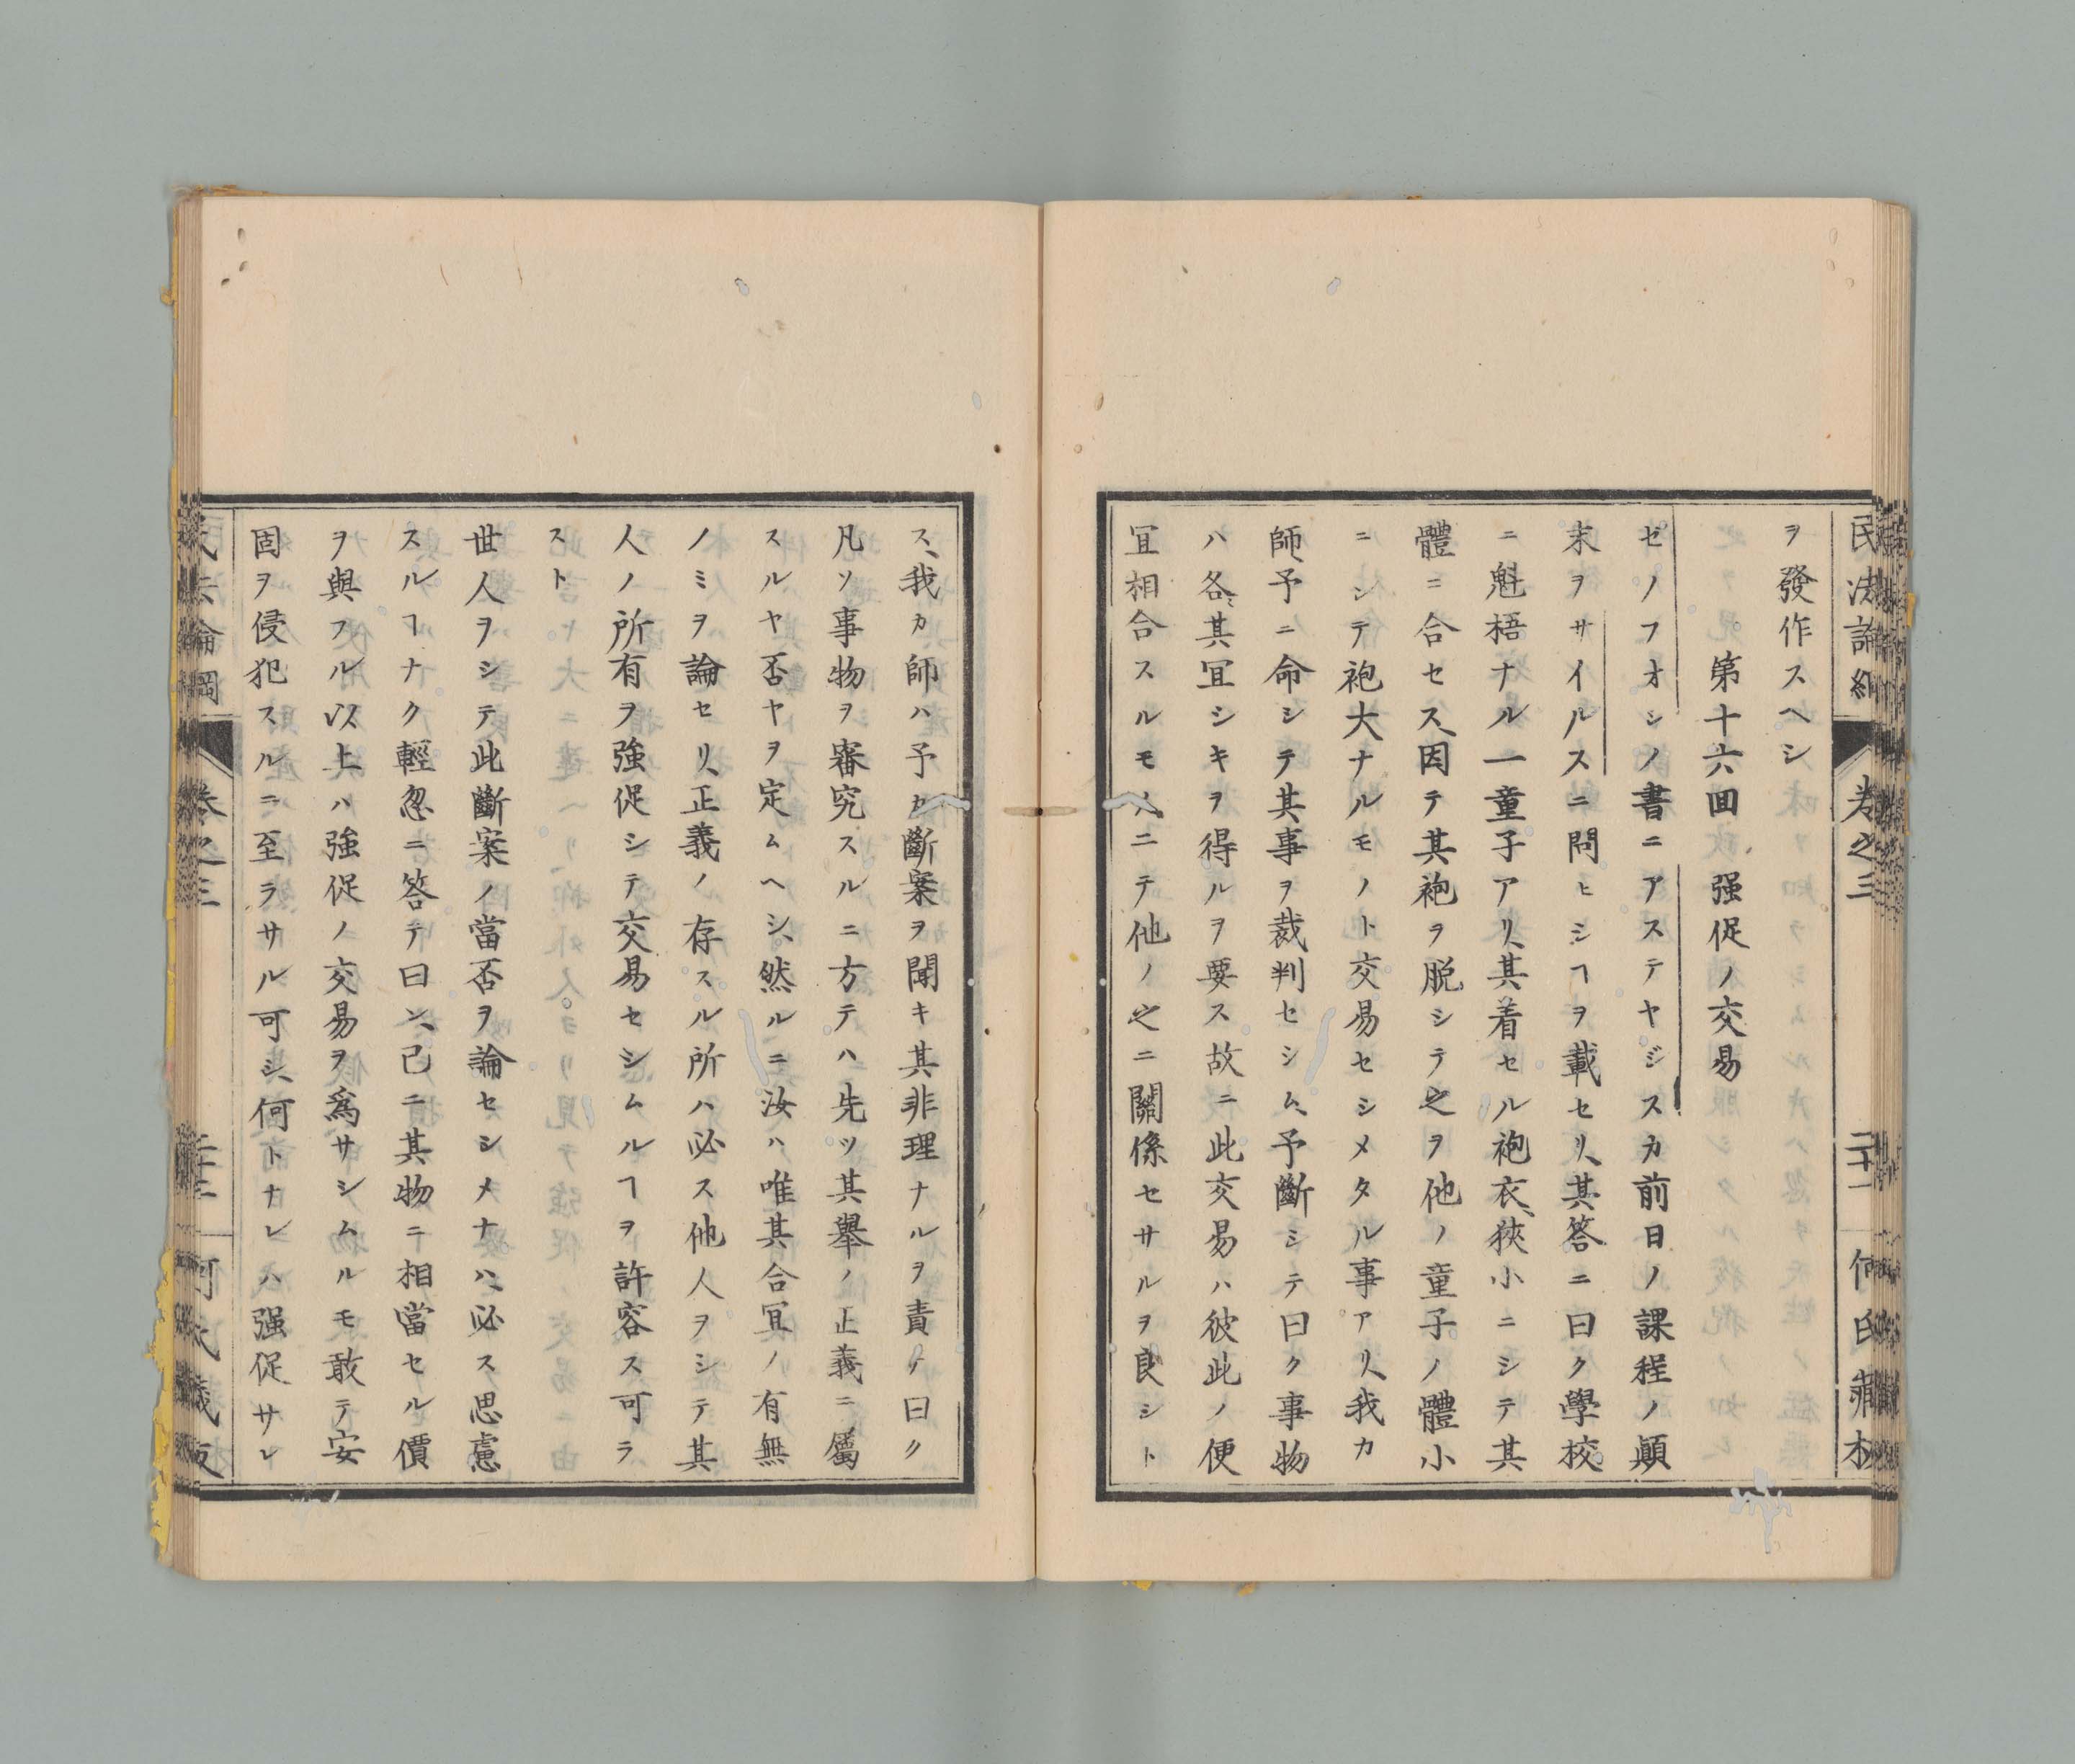 民法論綱
卷之三
二十一
何氏藏板
ヲ發作スヘシ
第十六回　强促ノ交易
ゼノフオシノ書ニアステヤジスカ前日ノ課程ノ顛
末ヲサイルスニ問ヒシヿヲ載セリ、其答ニ曰ク學校
ニ魁梧ナル一童子アリ、其着セル袍衣、狹小ニシテ其
體ニ合セス、因テ其袍ヲ脱シテ之ヲ他ノ童子ノ體小
ニシテ袍大ナルモノト交易セシメタル事アリ、我カ
師、予ニ命シテ其事ヲ裁判セシム、予斷シテ曰ク事物
ハ各、其冝シキヲ得ルヲ要ス故ニ此交易ハ彼此ノ便
冝相合スルモノニテ他ノ之ニ關係セサルヲ良シト
ス、我カ師ハ予カ斷案ヲ聞キ其非理ナルヲ責メ曰ク
凡ソ事物ヲ審究スルニ方テハ先ツ其擧ノ正義ニ屬
スルヤ否ヤヲ定ムヘシ、然ルニ汝ハ唯其合冝ノ有無
ノミヲ論セリ、正義ノ存スル所ハ必ス他人ヲシテ其
人ノ所有ヲ強促シテ交易セシムルヿヲ許容ス可ラ
スト
世人ヲシテ此斷案ノ當否ヲ論セシメナハ、必ス思慮
スルヿナク輕忽ニ答テ曰ン、己ニ其物ニ相當セル價
ヲ與フル以上ハ強促ノ交易ヲ爲サシムルモ敢テ安
固ヲ侵犯スルニ至ラサル可シ、何トナレハ强促サレ
民法論綱
卷之三
何氏藏板